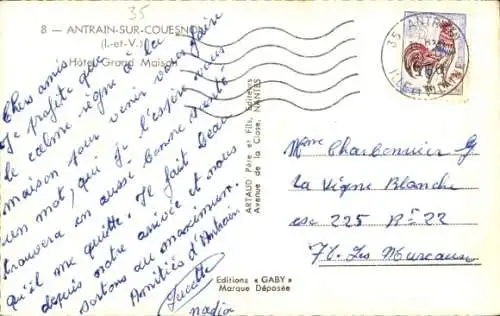 35
8 — ANTRAIN-SUR-COUESNON
(I.-et-V.)
Hôtel Grand Maison
Chers amis
Je profite que le
calme règne à la
maison pour venir vous faire
un mot, qui je l'espère vous
trouvera en aussi bonne santé
qu'il me quitte. Il fait beau
depuis notre arrivée et nous
sortons au maximum.
Amitiés d'Antrain
Lucette
Nadia
ARTAUD Père et Fils, Editeurs
Avenue de la Close, NANTES
Editions « GABY »
Marque Déposée
35 ANTRAIN
ILLE-ET-VILAINE
Mme Charbonnier G
La Vigne Blanche
esc 225 Rte 22
78. Les Mureaux